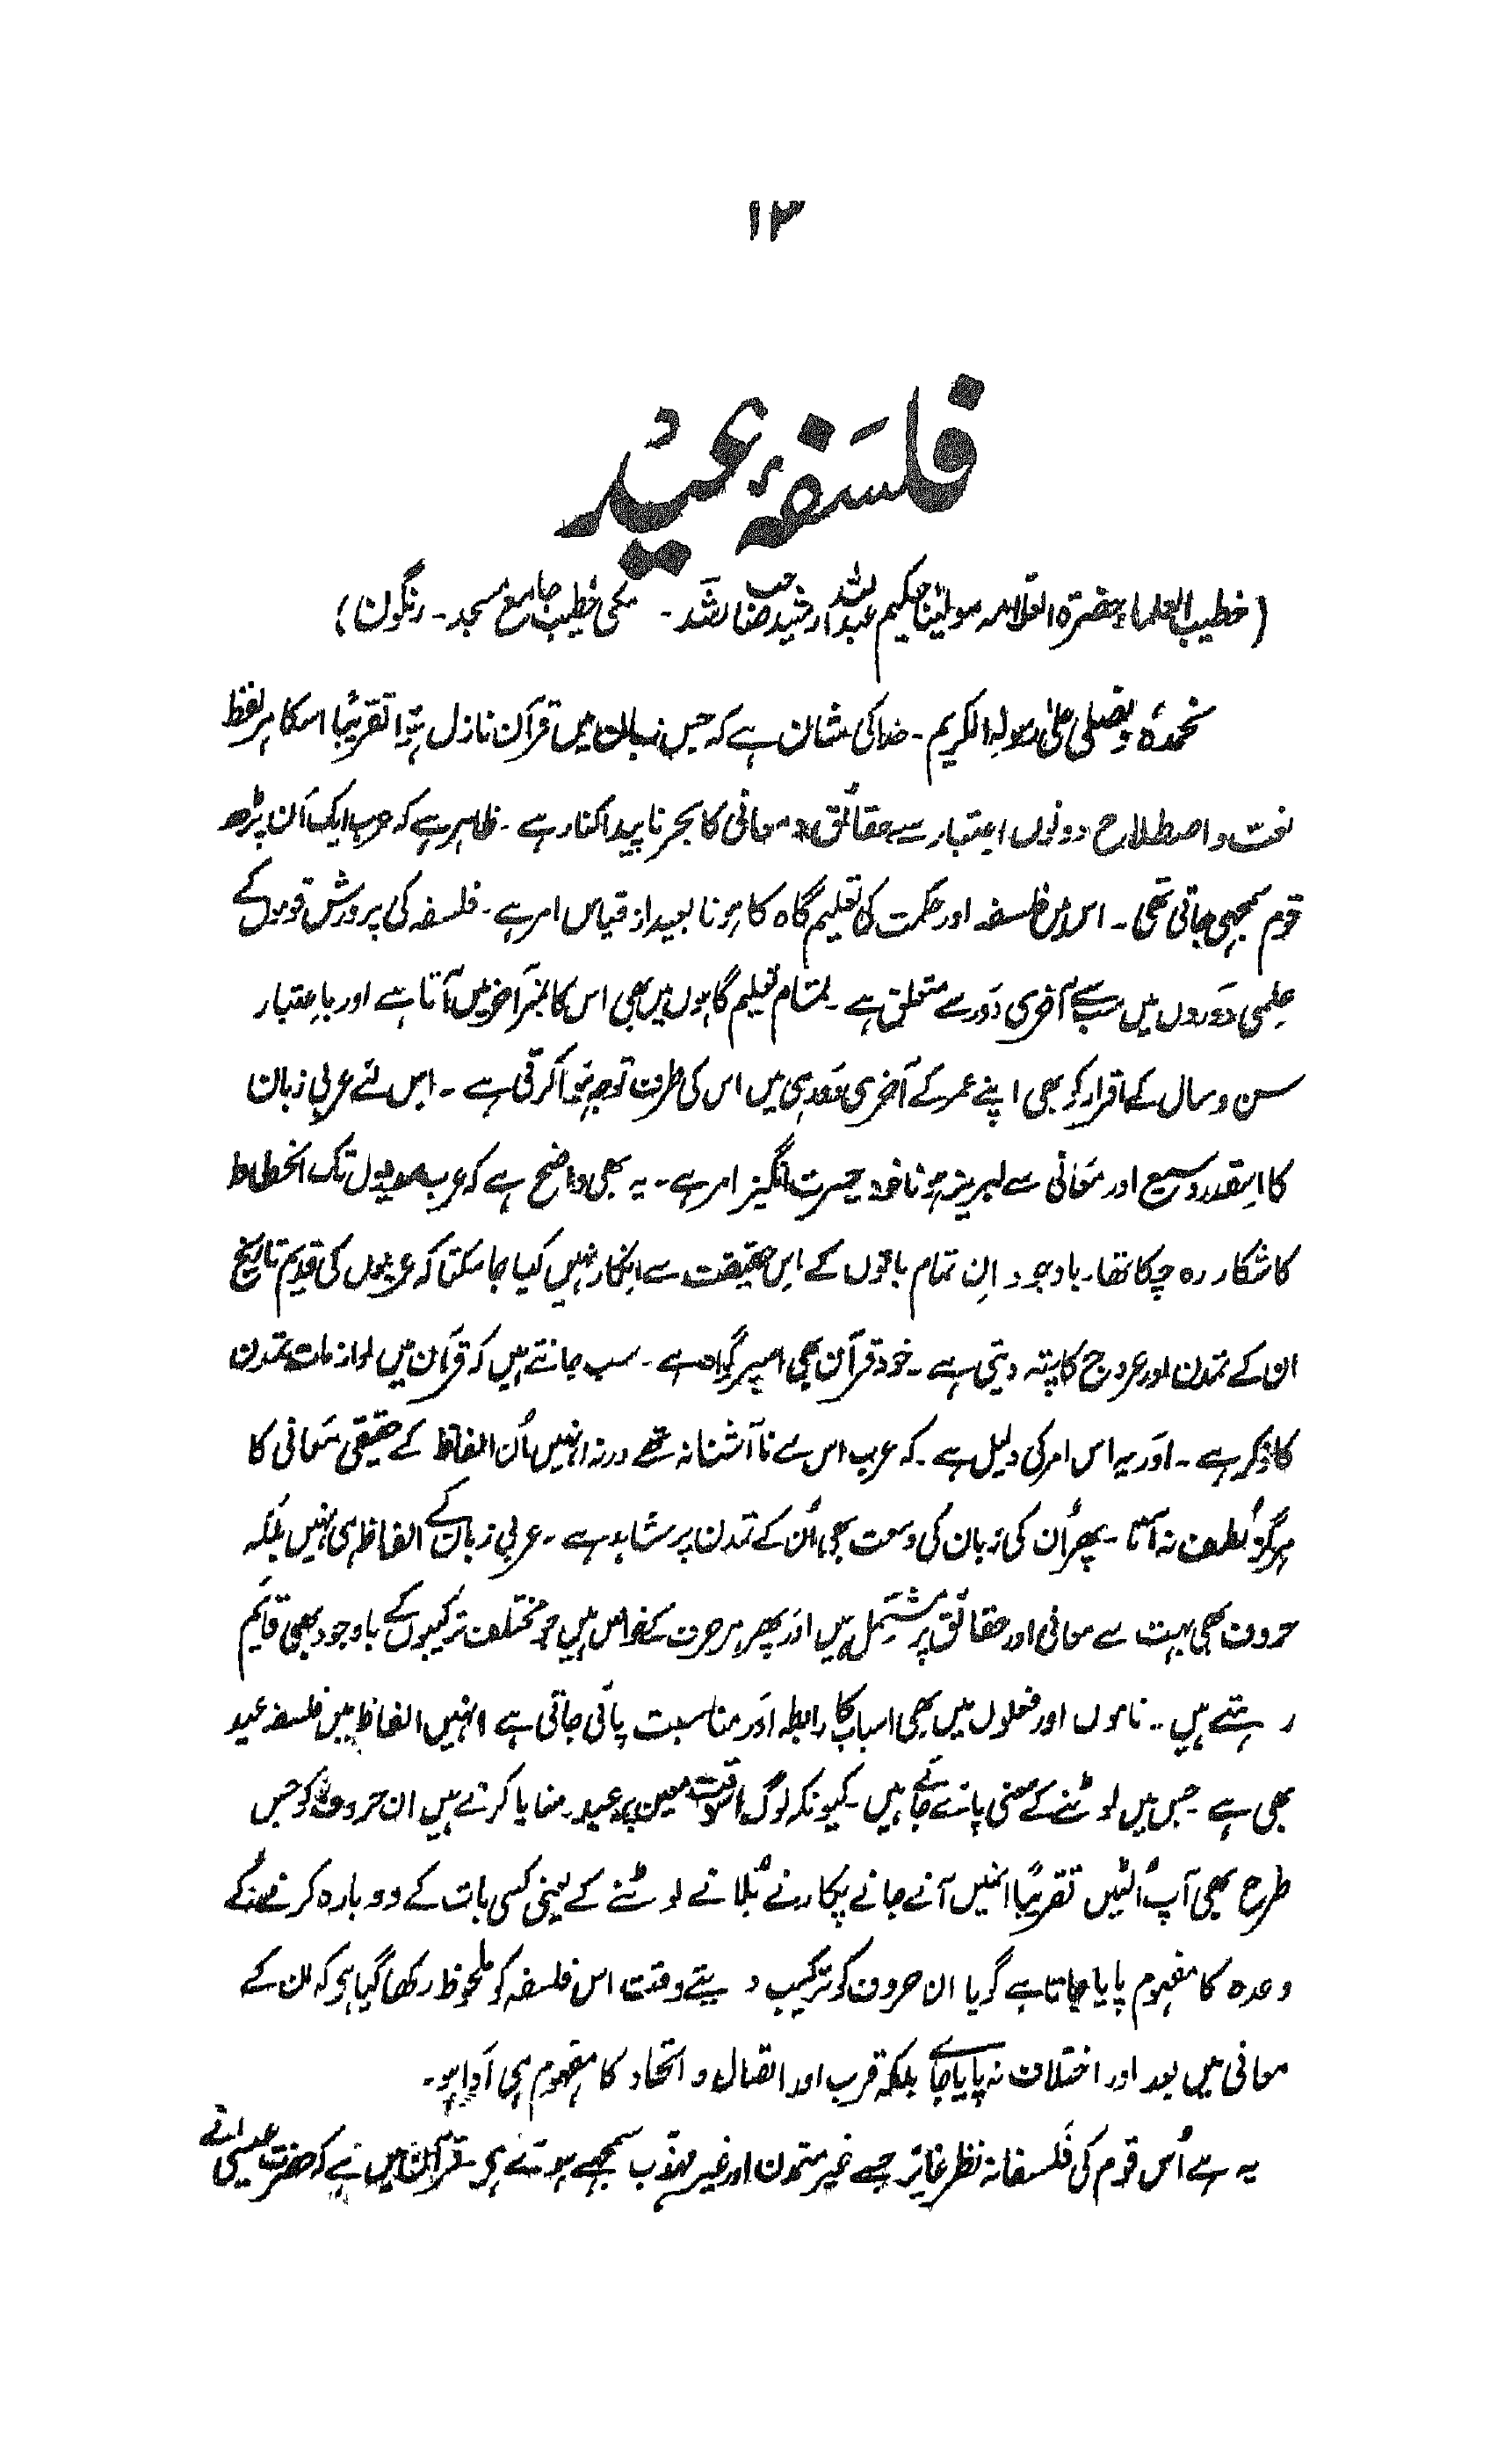 ۱۳
فلسَفۂ عید
(خطیب العلماء حضرۃ العلامہ مولینا حکیم عبدالرشید صاحب راشد۔ مکی خطیب جامع مسجد۔ رنگون)
نحمدہٗ ونصلی علیٰ رسولہِ الکریم۔ خدا کی شان ہے کہ جس زبان میں قرآن نازل ہوَا تقریبًا اسکا ہر لفظ
لغت و اصطلاح دونوں اعتبار سے حقائق و معانی کا بحر ناپیدا کنار ہے۔ ظاہر ہے کہ عرب ایک اَن پڑھ
قوم سمجھی جاتی تھی۔ اس میں فلسفہ اور حکمت کی تعلیم گاہ کا ہونا بعید از قیاس امر ہے۔ فلسفہ کی پرورش قوموں کے
عِلمی دَوروں میں سب سے آخری دَور سے متعلق ہے۔ تمام تعلیم گاہوں میں بھی اس کا نمبر آخر میں آتا ہے اور باعتبار
سن و سال کے افراد کو بھی اپنے عمر کے آخری دَور ہی میں اس کی طرف توجہ ہوَا کرتی ہے۔ اِس لئے عربی زبان
کا اسقدر وسیع اور مَعَانی سے لبریز ہونا خود حیرت انگیز امر ہے۔ یہ بھی واضح ہے کہ عرب صدیوں تک انحطاط
کا شکار رہ چکا تھا۔ باوجود اِن تمام باتوں کے اِس حقیقت سے اِنکار نہیں کیا جا سکتا کہ عربوں کی قدیم تاریخ
ان کے تمدن اور عروج کا پتہ دیتی ہے۔ خود قرآن بھی اسپر گواہ ہے۔ سب جانتے ہیں کہ قرآن میں لوازمات تمدن
کا ذِکر ہے۔ اوَر یہ اس امر کی دلیل ہے۔ کہ عرب اس سے ناآشنا نہ تھے ورنہ انہیں اُن الفاظ کے حقیقی مَعانی کا
ہرگز لُطف نہ آتا۔ پھر اُن کی زبان کی وسعت بھی اُن کے تمدن پر شاہد ہے۔ عربی زبان کے الفاظ ہی نہیں بلکہ
حروف بھی بہت سے معانی اور حقائق پر مشتَمِل ہیں اوَر پھر ہر حرف کے خواص ہیں جو مختلف ترکیبوں کے باوجود بھی قایَم
رہتے ہیں۔ ناموں اور فعلوں میں بھی اسباب کا رابطہ اوَر مناسبت پائی جاتی ہے انہیں الفاظ میں فلسفہ عید
بھی ہے جس میں لوٹنے کے معنی پائے جاتے ہیں۔ کیونکہ لوگ اسوقت معین پر عید۔ منایا کرتے ہیں ان حروف کو جس
طرح بھی آپ اُلٹیں تقریبًا انہیں آنے جانے پکارنے بُلانے لوٹنے کے یعنی کسی بات کے دوبارہ کرنے کے
وعدہ کا مفہوم پایا جاتا ہے گویا ان حروف کو ترکیب دیتے وقت اس فلسفہ کو ملحوظ رکھا گیا ہو کہ ان کے
معانی میں بعد اور اختلاف نہ پایا جائے بلکہ قرب اور اتصال و اتحاد کا مفہوم ہی اَدا ہو۔
یہ ہے اُس قوم کی فَلسفانہ نظر غائر جسے غیر متمدن اور غیر مہذّب سمجھے ہوئے ہو۔ قرآن میں ہے کہ حضرت عیسیٰ نے